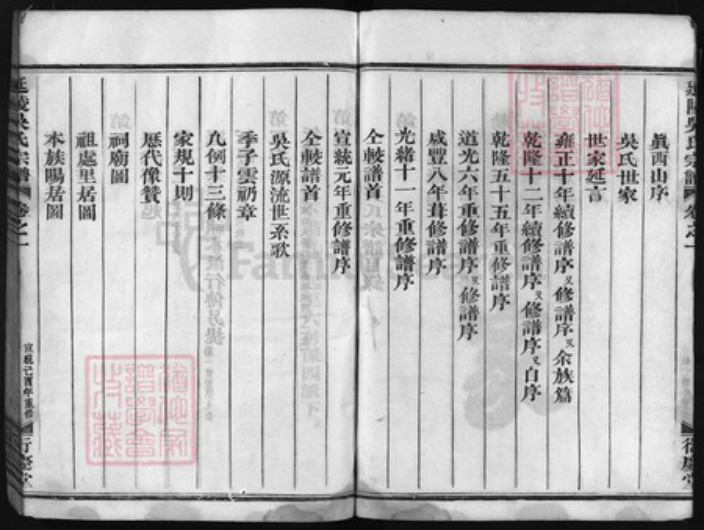 眞西山序
吳氏世家
世家延言
雍正十年續修譜序 又修譜序 又余族篇
乾隆十二年續修譜序 又修譜序 又自序
乾隆五十五年重修譜序
道光六年重修譜序 又修譜序
咸豐八年葺修譜序
光緒十一年重修譜序
仝較譜首
宣統元年重修譜序
仝較譜首
吳氏源流世系歌
季子雲礽章
凡例十三條
家規十則
歷代像贊
祠廟圖
祖處里居圖
本族陽居圖
延陵吳氏宗譜 卷之一
宣統己酉年重修
行慶堂